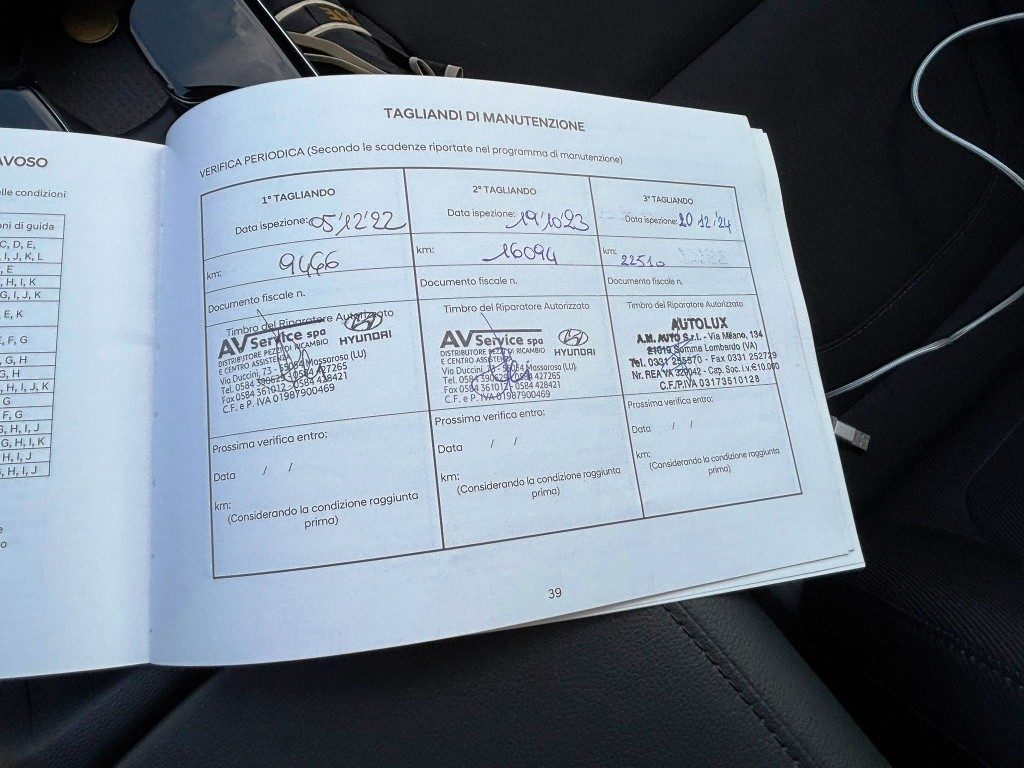 AVOSO
elle condizioni
ni di guida
C, D, E,
I, J, K, L
, E
H, I, K
G, I, J, K
E, K
E, F, G
, G, H
G, H
H, I, J, K
G
F, G
G, H, I, J
G, H, I, K
H, I, J
G, H, I, J
e
o
TAGLIANDI DI MANUTENZIONE
VERIFICA PERIODICA (Secondo le scadenze riportate nel programma di manutenzione)
1° TAGLIANDO
Data ispezione: 05/12/22
km: 9466
Documento fiscale n.
Timbro del Riparatore Autorizzato
AV Service spa HYUNDAI
DISTRIBUTORE PEZZI DI RICAMBIO
E CENTRO ASSISTENZA
Via Duccini, 73 - 55054 Massarosa (LU)
Tel. 0584 390629 0584 427265
Fax 0584 361012 0584 428421
C.F. e P. IVA 01987900469
Prossima verifica entro:
Data / /
km:
(Considerando la condizione raggiunta
prima)
2° TAGLIANDO
Data ispezione: 19/10/23
km: 16094
Documento fiscale n.
Timbro del Riparatore Autorizzato
AV Service spa HYUNDAI
DISTRIBUTORE PEZZI DI RICAMBIO
E CENTRO ASSISTENZA
Via Duccini, 73 - 55054 Massarosa (LU)
Tel. 0584 390629 0584 427265
Fax 0584 361012 0584 428421
C.F. e P. IVA 01987900469
Prossima verifica entro:
Data / /
km:
(Considerando la condizione raggiunta
prima)
3° TAGLIANDO
Data ispezione: 20 12/24
km: 22510
Documento fiscale n.
Timbro del Riparatore Autorizzato
AUTOLUX
A.M. AUTO S.r.l. - Via Milano, 134
21019 Somma Lombardo (VA)
Tel. 0331 255370 - Fax 0331 252729
Nr. REA VA 329042 - Cap. Soc. i.v. € 10.000
C.F./P.IVA 03173510128
Prossima verifica entro:
Data / /
km:
(Considerando la condizione raggiunta
prima)
39